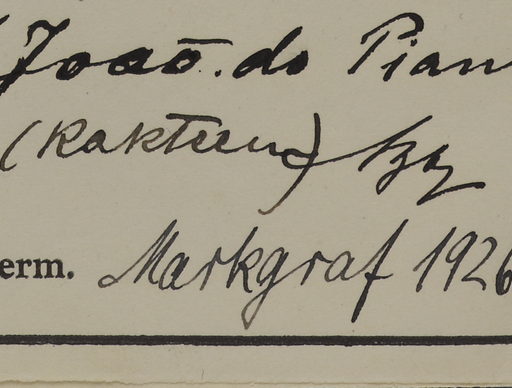 João. do Pian
(Kakteen)
erm. Markgraf 1926